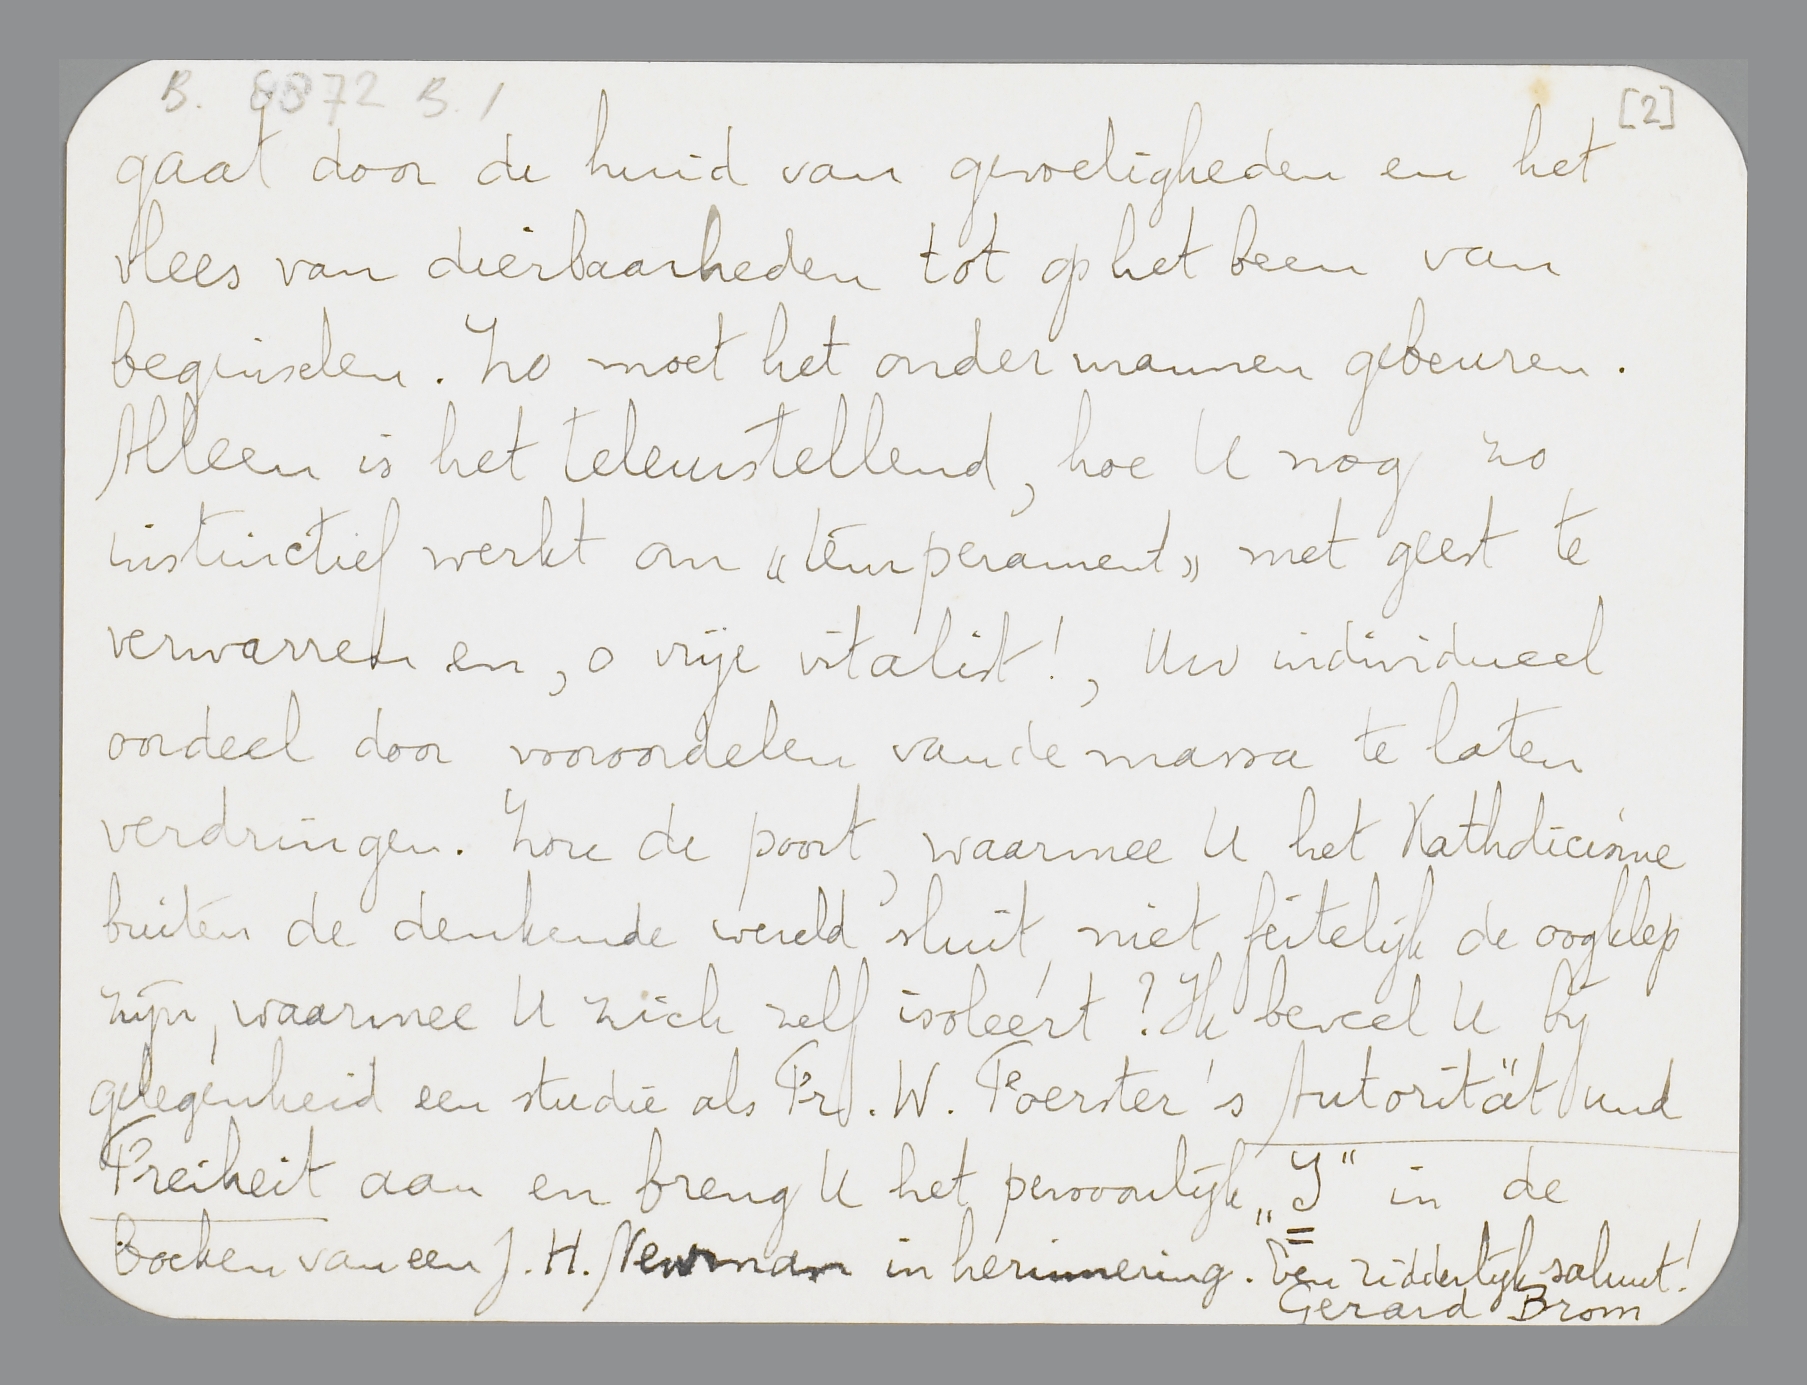 B. 8872 B. 1
[2]
gaat door de huid van gevoeligheden en het
vlees van dierbaarheden tot op het been van
beginselen. Zo moet het onder mannen gebeuren.
Alleen is het teleurstellend, hoe U nog zo
instinctief werkt om „temperament” met geest te
verwarren en, o vrije vitalist!, Uw individueel
oordeel door vooroordelen van de massa te laten
verdringen. Zou de poort, waarmee U het Katholicisme
buiten de denkende wereld sluit, niet feitelijk de oogklep
zijn, waarmee U zich zelf isoleert? Ik beveel U bij
gelegenheid een studie als Fr. W. Foerster's Autorität und
Freiheit aan en breng U het persoonlijk „I” in de
boeken van een J. H. Newman in herinnering. Een ridderlijk saluut!
Gerard Brom